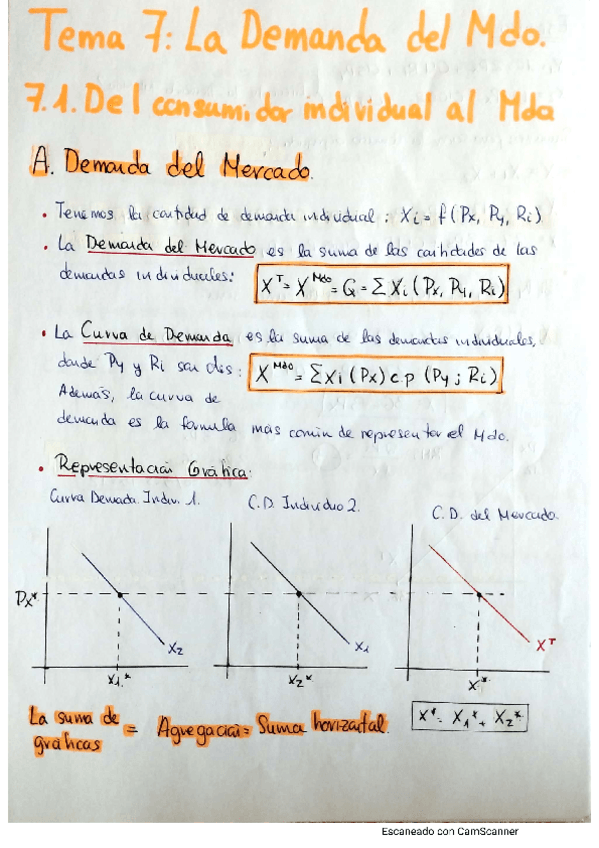 Tema 7: La Demanda del Mdo.
7.1. Del consumidor individual al Mdo
A. Demanda del Mercado.
• Tenemos la cantidad de demanda individual: Xi = f(Px, Py, Ri)
• La Demanda del Mercado es la suma de las cantidades de las
demandas individuales: X^T = X^Mdo = Q = Σ Xi (Px, Py, Ri)
• La Curva de Demanda es la suma de las demandas individuales,
donde Py y Ri son ctes: X^Mdo = Σ Xi (Px) c p (Py ; Ri)
Además, la curva de
demanda es la formula más común de representar el Mdo.
• Representación Gráfica:
Curva Demada. Indiv. 1. C.D. Individuo 2. C.D. del Mercado.
Px*
X2 X1 X^T
X1.* X2* X*
La suma de
gráficas = Agregación = Suma horizontal. X* = X1* + X2*
Escaneado con CamScanner